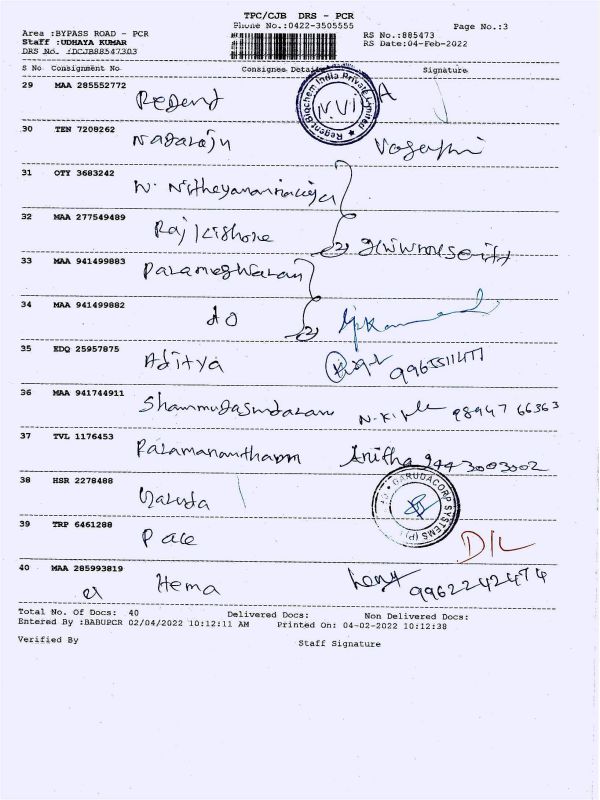 TPC/CJB DRS - PCR
Phone No.:0422-3505555
Page No.:3
Area :BYPASS ROAD - PCR
RS No.:885473
Staff :UDHAYA KUMAR
RS Date:04-Feb-2022
DRS No. :DCJB88547303
S No Consignment No Consignee Details Signature
29 MAA 285552772 Regent
Regent Biochem India Private Limited
30 TEN 7208262 Nagaraju
31 OTY 3683242
32 MAA 277549489 Raj Kishore
33 MAA 941499883 Parameshwaran
34 MAA 941499882 do
35 EDQ 25957875 Aditya
36 MAA 941744911 Shanmugasundaram 98947 66363
37 TVL 1176453 Paramanantham Anitha 9443003002
38 HSR 2278488 Garuda
GARUDACORP SYSTEMS (P)
39 TRP 6461288 Pace D/L
40 MAA 285993819 Hema 9962242474
Total No. Of Docs: 40 Delivered Docs: Non Delivered Docs:
Entered By :BABUPCR 02/04/2022 10:12:11 AM Printed On: 04-02-2022 10:12:38
Verified By Staff Signature